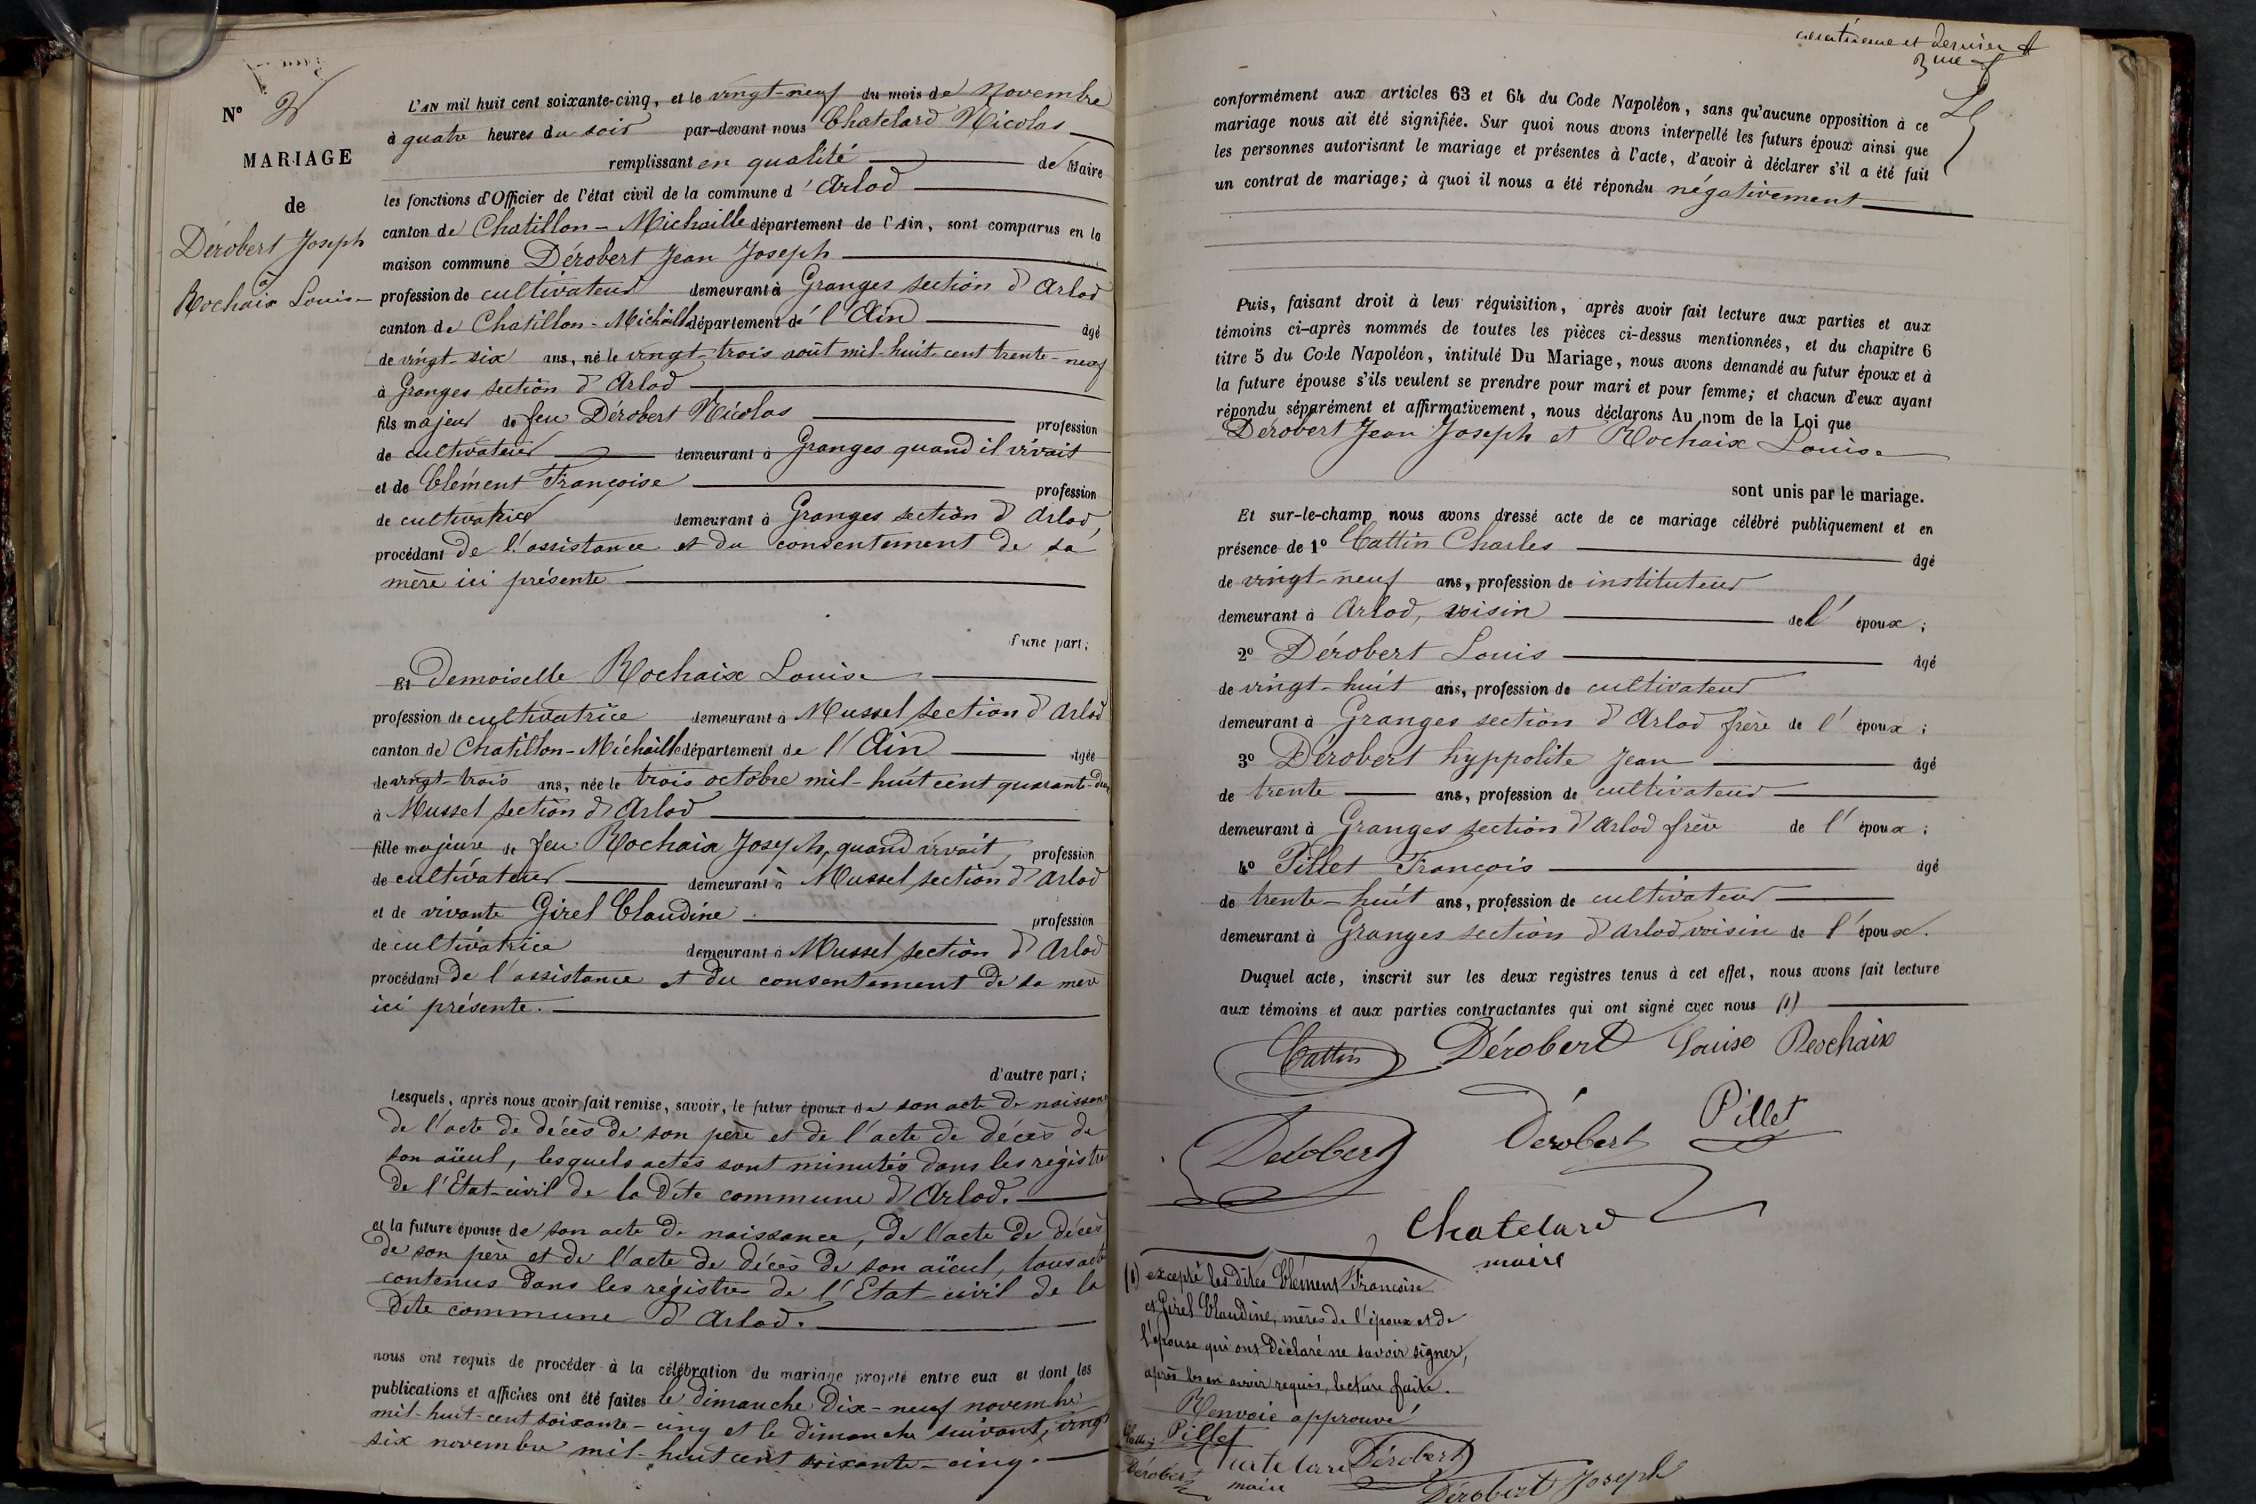 N° 
MARIAGE
de
Dérobert Joseph
à
Rochaix Louise
L'AN mil huit cent soixante-cinq, et le vingt-neuf du mois de Novembre
à quatre heures du soir par-devant nous Chatelard Nicolas
remplissant en qualité de Maire
les fonctions d'Officier de l'état civil de la commune d'Arlod
canton de Chatillon-Michaille département de l'Ain, sont comparus en la
maison commune Dérobert Jean Joseph
profession de cultivateur demeurant à Granges section d'Arlod
canton de Chatillon-Michaille département de l'Ain âgé
de vingt-six ans, né le vingt-trois août mil-huit-cent trente-neuf
à Granges section d'Arlod
fils majeur de feu Dérobert Nicolas profession
de cultivateur demeurant à Granges quand il vivait
et de Clément Françoise profession
de cultivatrice demeurant à Granges section d'Arlod,
procédant de l'assistance et du consentement de sa
mère ici présente
d'une part;
Et Demoiselle Rochaix Louise
profession de cultivatrice demeurant à Mussel section d'Arlod
canton de Chatillon-Michaille département de l'Ain âgée
de vingt-trois ans, née le trois octobre mil-huit cent quarante-deux
à Mussel section d'Arlod
fille majeure de feu Rochaix Joseph, quand vivait, profession
de cultivateur demeurant à Mussel section d'Arlod
et de vivante Girel Claudine profession
de cultivatrice demeurant à Mussel section d'Arlod
procédant de l'assistance et du consentement de sa mère
ici présente.
d'autre part;
Lesquels, après nous avoir fait remise, savoir, le futur époux de son acte de naissance
de l'acte de décès de son père et de l'acte de décès de
son aïeul, lesquels actes sont minutés dans les registres
de l'Etat-civil de la dite commune d'Arlod.
et la future épouse de son acte de naissance, de l'acte de décès
de son père et de l'acte de décès de son aïeul, tous actes
contenus dans les régistres de l'Etat civil de la
dite commune d'Arlod.
nous ont requis de procéder à la célébration du mariage projeté entre eux et dont les
publications et affiches ont été faites le dimanche dix-neuf novembre
mil-huit-cent soixante-cinq et le dimanche suivant, vingt
six novembre mil-huit cent soixante-cinq.
et dernier
3me
conformément aux articles 63 et 64 du Code Napoléon, sans qu'aucune opposition à ce
mariage nous ait été signifiée. Sur quoi nous avons interpellé les futurs époux ainsi que
les personnes autorisant le mariage et présentes à l'acte, d'avoir à déclarer s'il a été fait
un contrat de mariage; à quoi il nous a été répondu négativement
Puis, faisant droit à leur réquisition, après avoir fait lecture aux parties et aux
témoins ci-après nommés de toutes les pièces ci-dessus mentionnées, et du chapitre 6
titre 5 du Code Napoléon, intitulé Du Mariage, nous avons demandé au futur époux et à
la future épouse s'ils veulent se prendre pour mari et pour femme; et chacun d'eux ayant
répondu séparément et affirmativement, nous déclarons Au nom de la Loi que
Dérobert Jean Joseph et Rochaix Louise
sont unis par le mariage.
Et sur-le-champ nous avons dressé acte de ce mariage célébré publiquement et en
présence de 1° Cattin Charles âgé
de vingt-neuf ans, profession de instituteur
demeurant à Arlod, voisin de l'époux;
2° Dérobert Louis âgé
de vingt-huit ans, profession de cultivateur
demeurant à Granges section d'Arlod frère de l'époux;
3° Dérobert hyppolite Jean âgé
de trente ans, profession de cultivateur
demeurant à Granges section d'Arlod frère de l'époux;
4° Pillet François âgé
de trente-huit ans, profession de cultivateur
demeurant à Granges section d'Arlod voisin de l'époux.
Duquel acte, inscrit sur les deux registres tenus à cet effet, nous avons fait lecture
aux témoins et aux parties contractantes qui ont signé avec nous (1)
Cattin Dérobert Louise Rochaix
Dérobert Dérobert Pillet
Chatelard
maire
(1) excepté les dites Clément Françoise
et Girel Claudine, mères de l'époux et de
l'épouse qui ont déclaré ne savoir signer,
après les en avoir requis, lecture faite.
Renvoie approuvé
Cattin Pillet
Dérobert Chatelard maire Dérobert
Dérobert Joseph